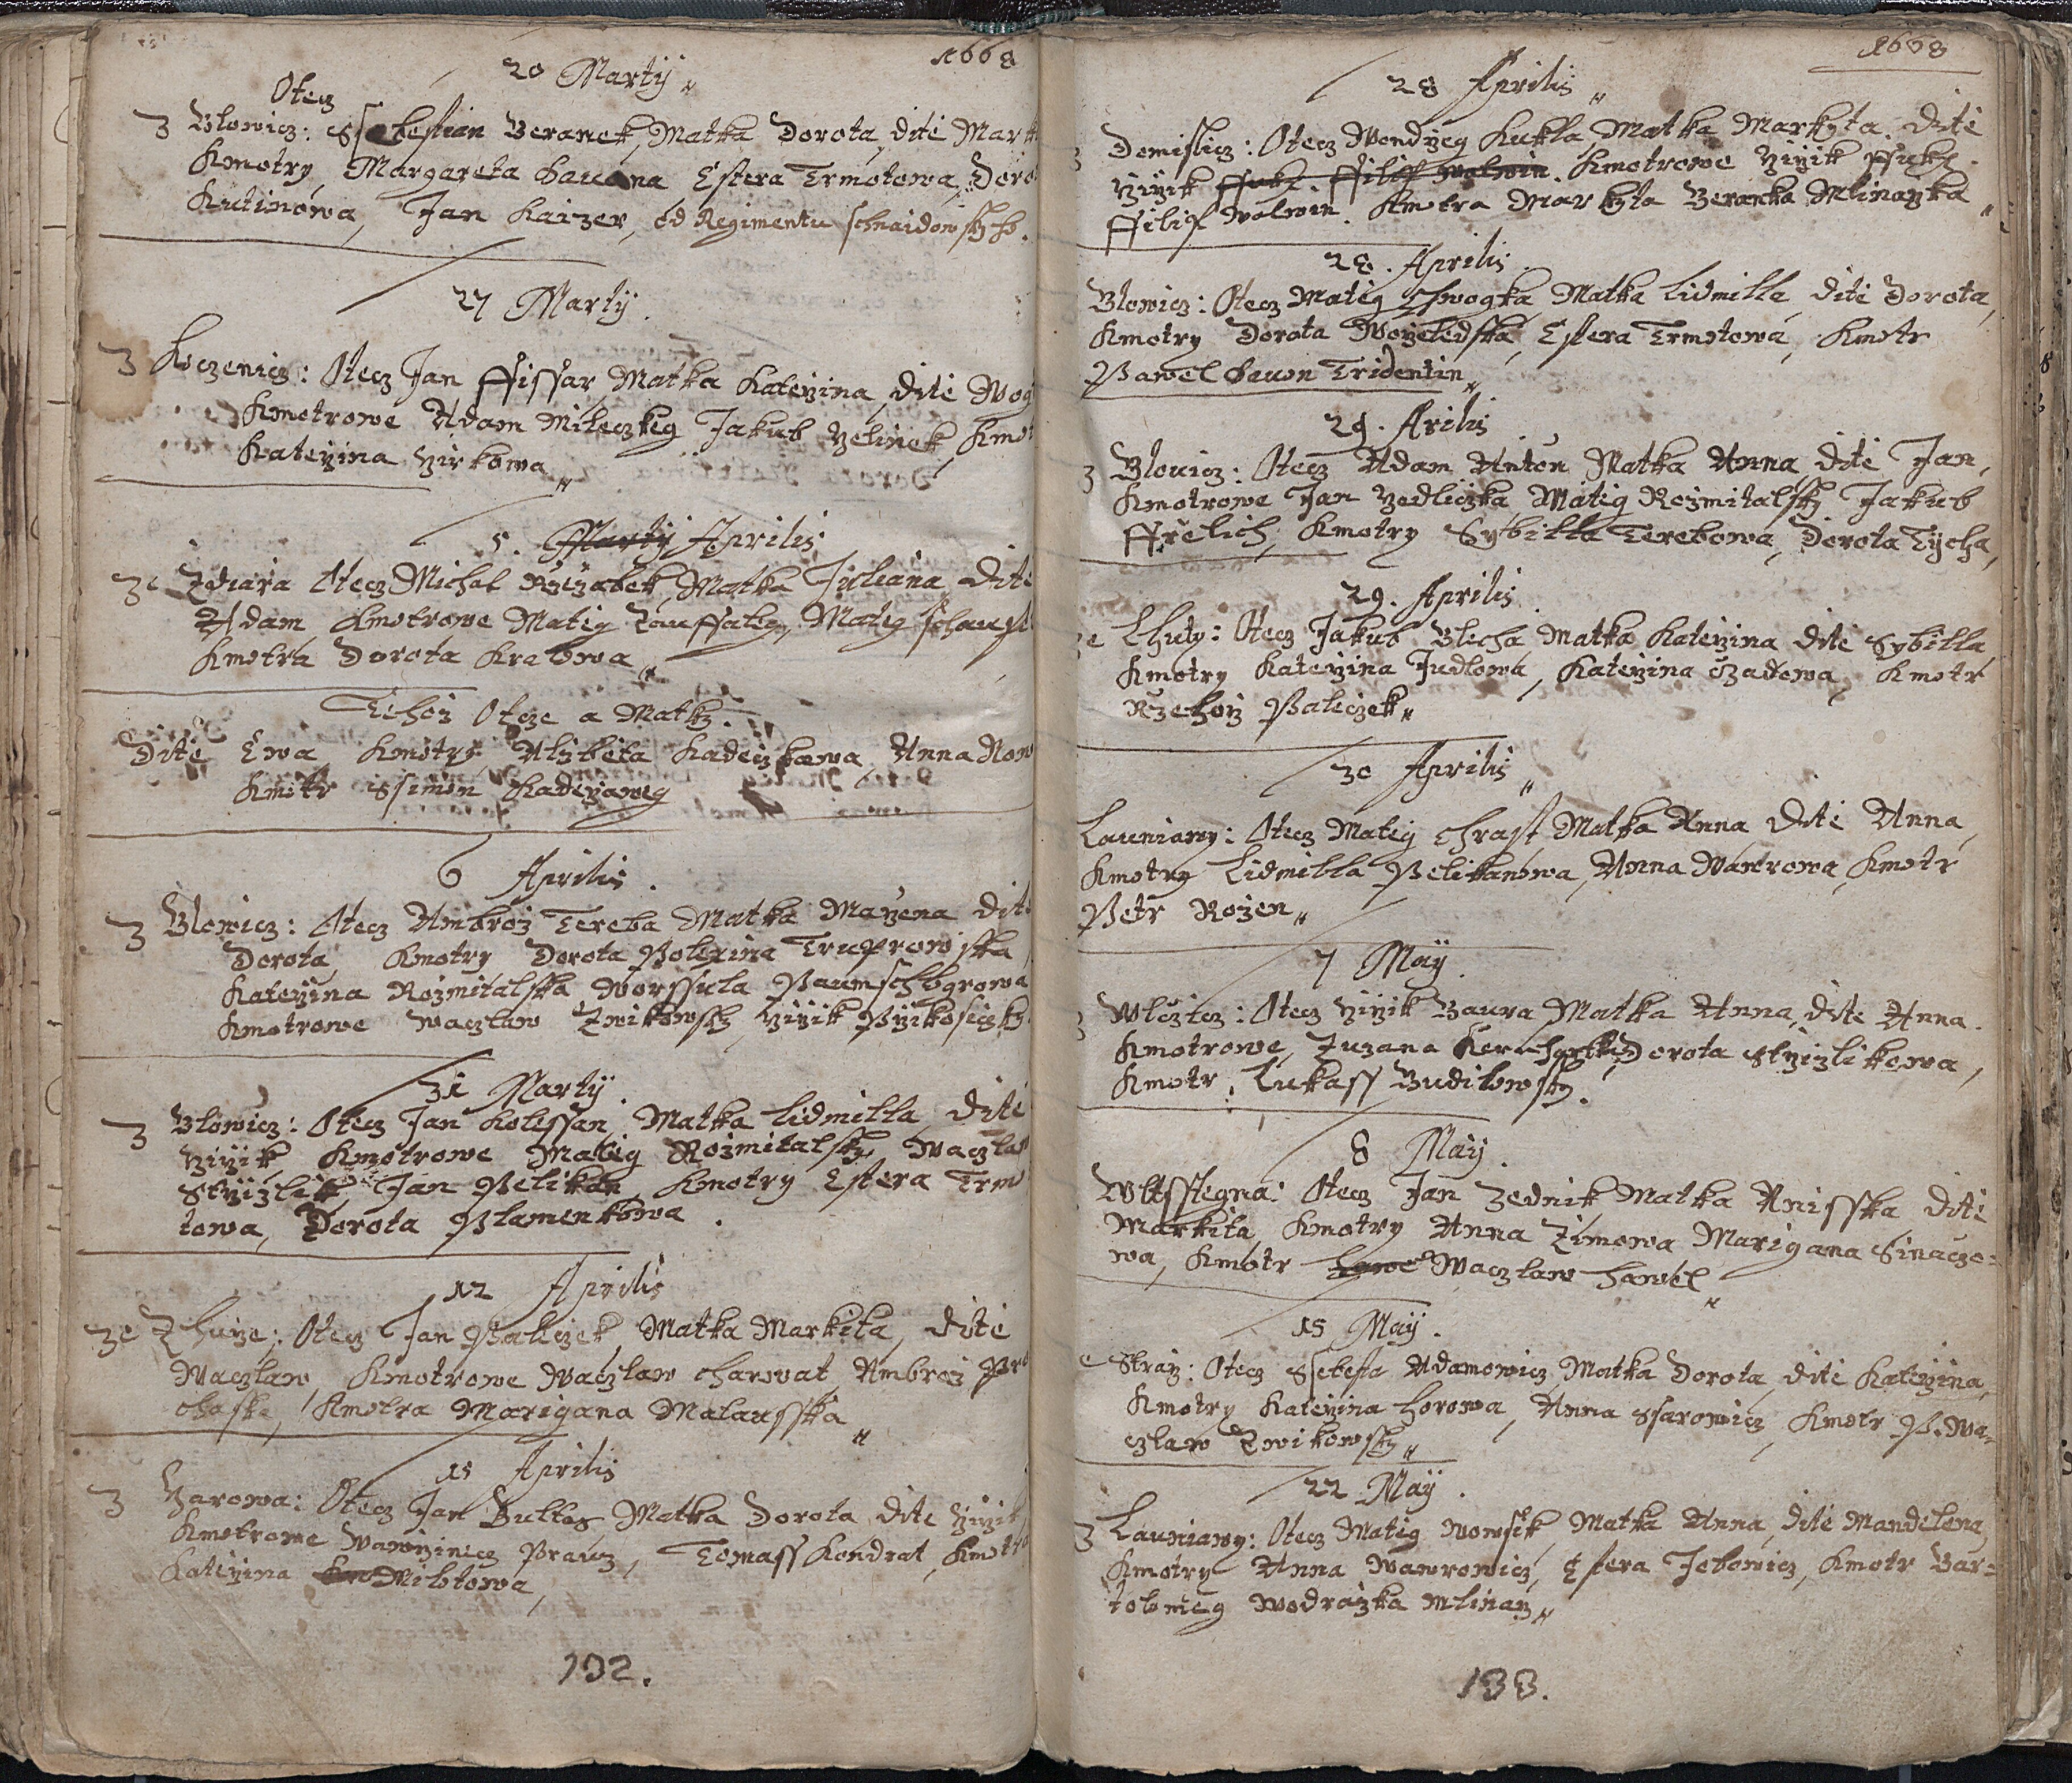 1668
20 Martij
Otecz
Z Blowicz: Ssebestian Beranek, Matka Dorota, dite Mark
Kmotry Margareta Bauona Estera Trmotowa, Doro
Kutinowa, Jan Kaizer, od Regimentu
27 Martij.
Z Koczenicz: Otecz Jan Ffissar, Matka Kateřina, dite Wog
Kmotrowe Adam Mileczkeg Jakub Yelinek, Kmot
Kateřina Yirkowa
5. Martij Aprilis
Ze Zdiara Otecz Michal Rzezabek, Matka Juliana dite
Adam Kmotrowe Matig Matig
Kmotra Dorota Kralowa
Tehoz Otcze a Matky.
Dite Ewa Kmotry Alzbieta Kadeczkowa Anna Now
Kmotr Ssimon
6 Aprilis.
Z Blowicz: Otecz Ambroz Tereba Matka Mařena dite
Dorota Kmotry Dorota
Kateřina Rozmitalska Worssula
Kmotrowe Waczlaw Zwikowsky, Yiřik
31 Martij.
Z Blowicz: Otecz Jan Kolessan Matka Lidmilla dite
Yiřik Kmotrowe Matig Rozmitalsky, Waczlaw
Střizlik Jan Pelikan Kmotry Estera Trmo
towa, Dorota Plamenkowa.
12 Aprilis
Ze Zhuře: Otecz Jan Paliczek Matka Markita, dite
Waczlaw, Kmotrowe Waczlaw Charwat, Ambroz Pro
chaska, Kmotra Marigana Malausska
15 Aprilis
Z Yarowa: Otecz Jan Matka Dorota dite Yiřik
Kmotrowe Wawřinecz Prancz, Tomass Kondrat, Kmotra
Kateřina Milotowa,
132.
1668
28 Aprilis
Z Domislicz: Otecz Wondřeg Kukla, Matka Markyta. dite
Yiřik Ffukl. Ffilip Wolwin. Kmotrowe Yiřik Ffukl.
Ffilip Wolwin. Kmotra Markyta Beranka Mlinařka
28. Aprilis.
Blowicz: Otecz Matig Matka Lidmilla dite Dorota,
Kmotry Dorota Estera Trmotowa, Kmotr
Pawel Bauon Tridentin
29. Arilis
Z Blouicz: Otecz Adam Anton Matka Anna dite Jan,
Kmotrowe Jan Yedliczka, Matig Rozmitalsky Jakub
Ffrelich, Kmotry Sybilla Terebowa, Dorota Tycha,
29. Aprilis.
Ze Lhuty: Otecz Jakub Blecha Matka Kateřina dite Sybilla
Kmotry Kateřina Judlowa, Kateřina Czadowa, Kmotr
Rzehoř Paliczek
30 Aprilis
Launiowy: Otecz Matig Chrast Matka Anna dite Anna,
Kmotry Lidmilla Pelikanowa, Anna Wawrowa, Kmotr
Petr Rozen
7 May.
Z Wlczicz: Otecz Yiřik Baura Matka Anna, dite Anna.
Kmotrowe, Zuzana Dorota Střizlikowa,
Kmotr, Lukass Budilowsky.
8 May.
Otecz Jan Zednik, Matka Anisska dite
Markita Kmotry Anna Zimowa Marigana Sinaczo=
wa, Kmotr Waczlaw Hawel
15 May.
Ze Straz: Otecz Ssebesta Adamowicz Matka Dorota, dite Kateřina,
Kmotry Kateřina Horowa, Anna Sfarowicz, Kmotr P. Wa=
czlaw Zwikowsky
22 May.
Z Launiowy: Otecz Matig Wowsik, Matka Anna, dite Mandelena,
Kmotry Anna Wawrowicz, Estera Jebowicz, Kmotr Bar=
tolomeg Wodrazka Mlinař
133.